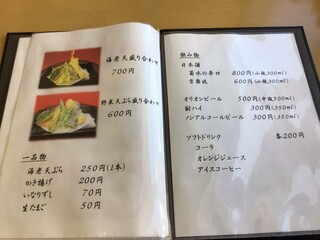 海老天盛り合わせ
700円
野菜天ぷら盛り合わせ
600円
一品物
海老天ぷら 250円(1本)
かき揚げ 200円
いなりずし 70円
生たまご 50円
飲み物
日本酒
菊水の辛口 800円(小瓶300ml)
600円(小瓶300ml)
オリオンビール 500円(中瓶500ml)
酎ハイ 300円(350ml)
ノンアルコールビール 300円(350ml)
ソフトドリンク 各200円
コーラ
オレンジジュース
アイスコーヒー